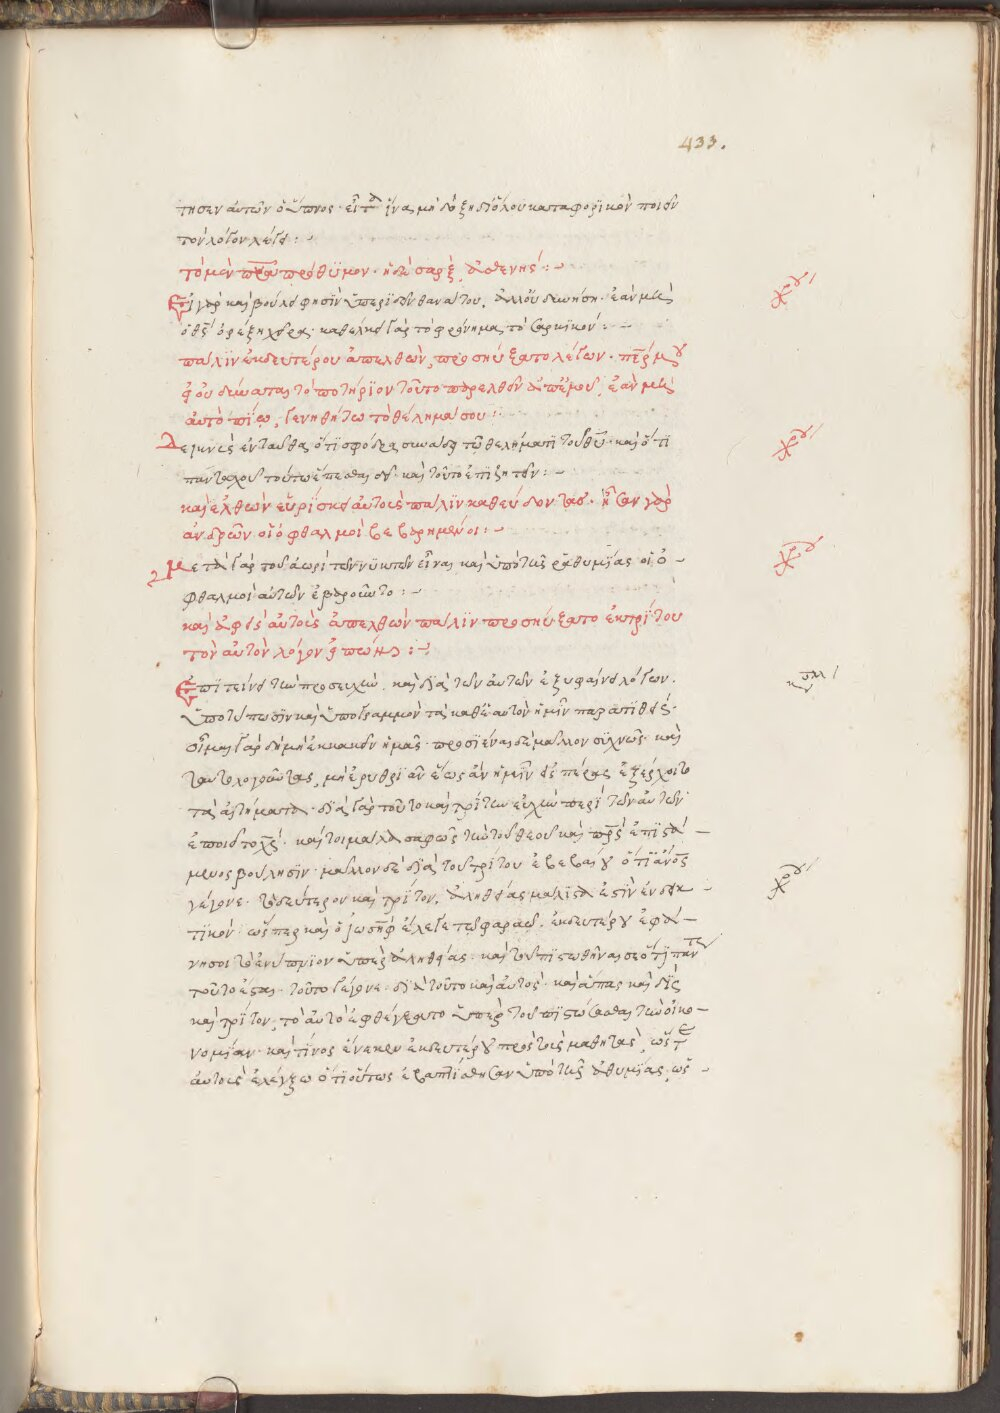 433.
τησεν αὐτῶν ὁ ὕπνος· εἶτα ἵνα μὴ δόξη διόλου καταφορικὸν ποιεῖν
τὸν λόγον λέγει :-
τὸ μὲν πνα πρόθυμον· ἡ δὲ σαρξ ἀσθενής :-
Εἰ γὰρ καὶ βούλει φησὶν ὑπεριδεῖν θανάτου, ἀλλ' οὐ δυνήση· ἐὰν μὴ
ὁ θς ὀρέξη χεῖρα· καθέλκει γὰρ τὸ φρόνημα τὸ σαρκικόν :-
πάλιν ἐκ δευτέρου ἀπελθὼν, προσηύξατο λέγων· περ μου
εἰ οὐ δύναται τὸ ποτήριον τοῦτο παρελθεῖν ἀπ' ἐμοῦ, ἐὰν μὴ
αὐτὸ πίω, γενηθήτω τὸ θέλημά σου :-
Δείκνυσιν ἐνταῦθα, ὅτι σφόδρα συνάδει τῶ θελήματι τοῦ θυ· καὶ ὅτι
πανταχοῦ τούτω ἕπεσθαι δεῖ· καὶ τοῦτο ἐπιζητεῖν :-
καὶ ἐλθὼν εὑρίσκει αὐτοὺς πάλιν καθεύδοντας· ἦσαν γὰρ
αὐτῶν οἱ ὀφθαλμοὶ βεβαρημένοι :-
Μετὰ γὰρ τοῦ ἀωρὶ τῶν νυκτῶν εἶναι καὶ ὑπὸ τῆς ῥαθυμίας οἱ ὀ-
φθαλμοὶ αὐτῶν ἐβαροῦντο :-
καὶ ἀφεὶς αὐτοὺς ἀπελθὼν πάλιν προσηύξατο ἐκ τρίτου
τὸν αὐτὸν λόγον εἰπών :-
Ἐπιτείνει τὴν προσευχὴν, καὶ διὰ τῶν αὐτῶν ἐξυφαίνει λόγων.
ὑποτύπωσιν καὶ ὑπογραμμὸν τὰ καθ' ἑαυτὸν ἡμῖν παρατιθείς·
οἶμαι γὰρ δὴ μὴ ἐκκακεῖν ἡμᾶς· προσιέναι δὲ μᾶλλον συχνῶς· καὶ
ταυτολογοῦντας, μὴ ἐρυθριᾶν ἕως ἂν ἡμῖν εἰς πέρας ἐξέρχοιτο
τὰ αἰτήματα· διὰ γὰρ τοῦτο καὶ τρίτην εὐχὴν περὶ τῶν αὐτῶν
ἐποιεῖτο χς· καίτοι μάλα σαφῶς τὴν τοῦ θεοῦ καὶ πρς ἐπιστά-
μενος βούλησιν· μᾶλλον δὲ διὰ τοῦ τρίτου ἐβεβαίου ὅτι ἄνος
γέγονε· τὸ δεύτερον καὶ τρίτον, ἀληθείας μάλιστα ἐστὶν ἐνδεικ-
τικόν· ὥσπερ καὶ ὁ ἰωσὴφ ἔλεγε τῶ φαραώ. ἐκ δευτέρου ἐφά-
νη σοι τὸ ἐνύπνιον ὑπὲρ ἀληθείας· καὶ τοῦ πιστωθῆναί σε ὅτι πάντως
τοῦτο ἔσται· τοῦτο γέγονε· διὰ τοῦτο καὶ αὐτὸς· καὶ ἅπαξ καὶ δὶς
καὶ τρίτον, τὸ αὐτὸ ἐφθέγξατο ὑπὲρ τοῦ πιστώσασθαι τὴν οἰκο-
νομίαν· καὶ τίνος ἕνεκεν ἐκ δευτέρου πρὸς τοὺς μαθητὰς, ὥστε
αὐτοὺς ἐλέγξαι ὅτι οὕτως ἐβαπτίσθησαν ὑπὸ τῆς ἀθυμίας, ὡς